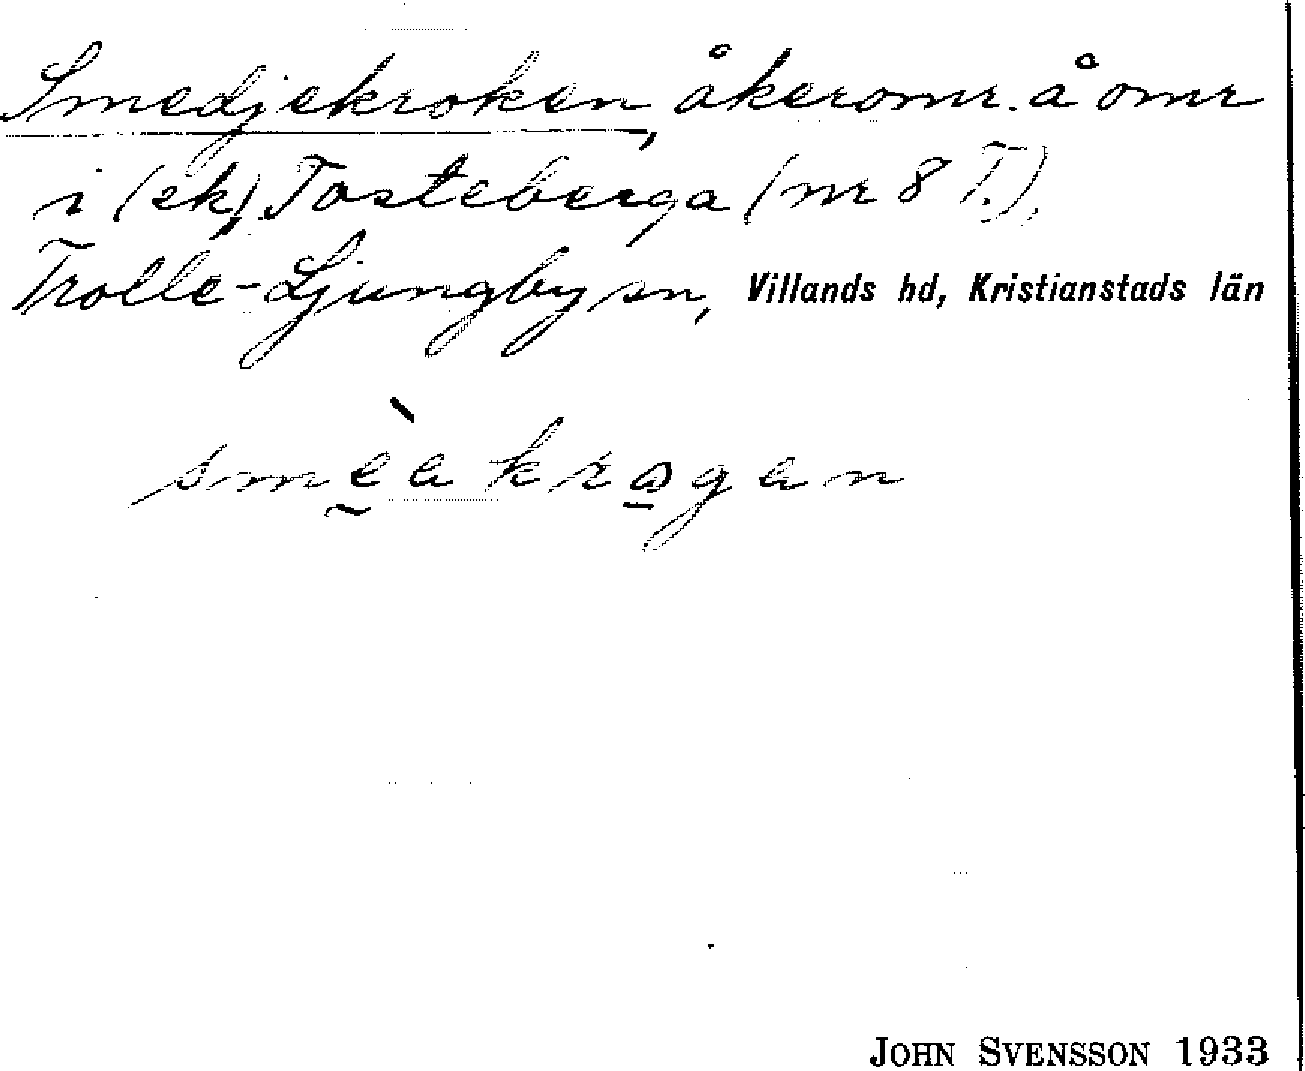 Smedjekroken, åkeromr. å omr
i (ek), Tosteberga (nr 8 T.),
Trolle-Ljungby sn, Villands hd, Kristianstads län
smèakrogan
JOHN SVENSSON 1933